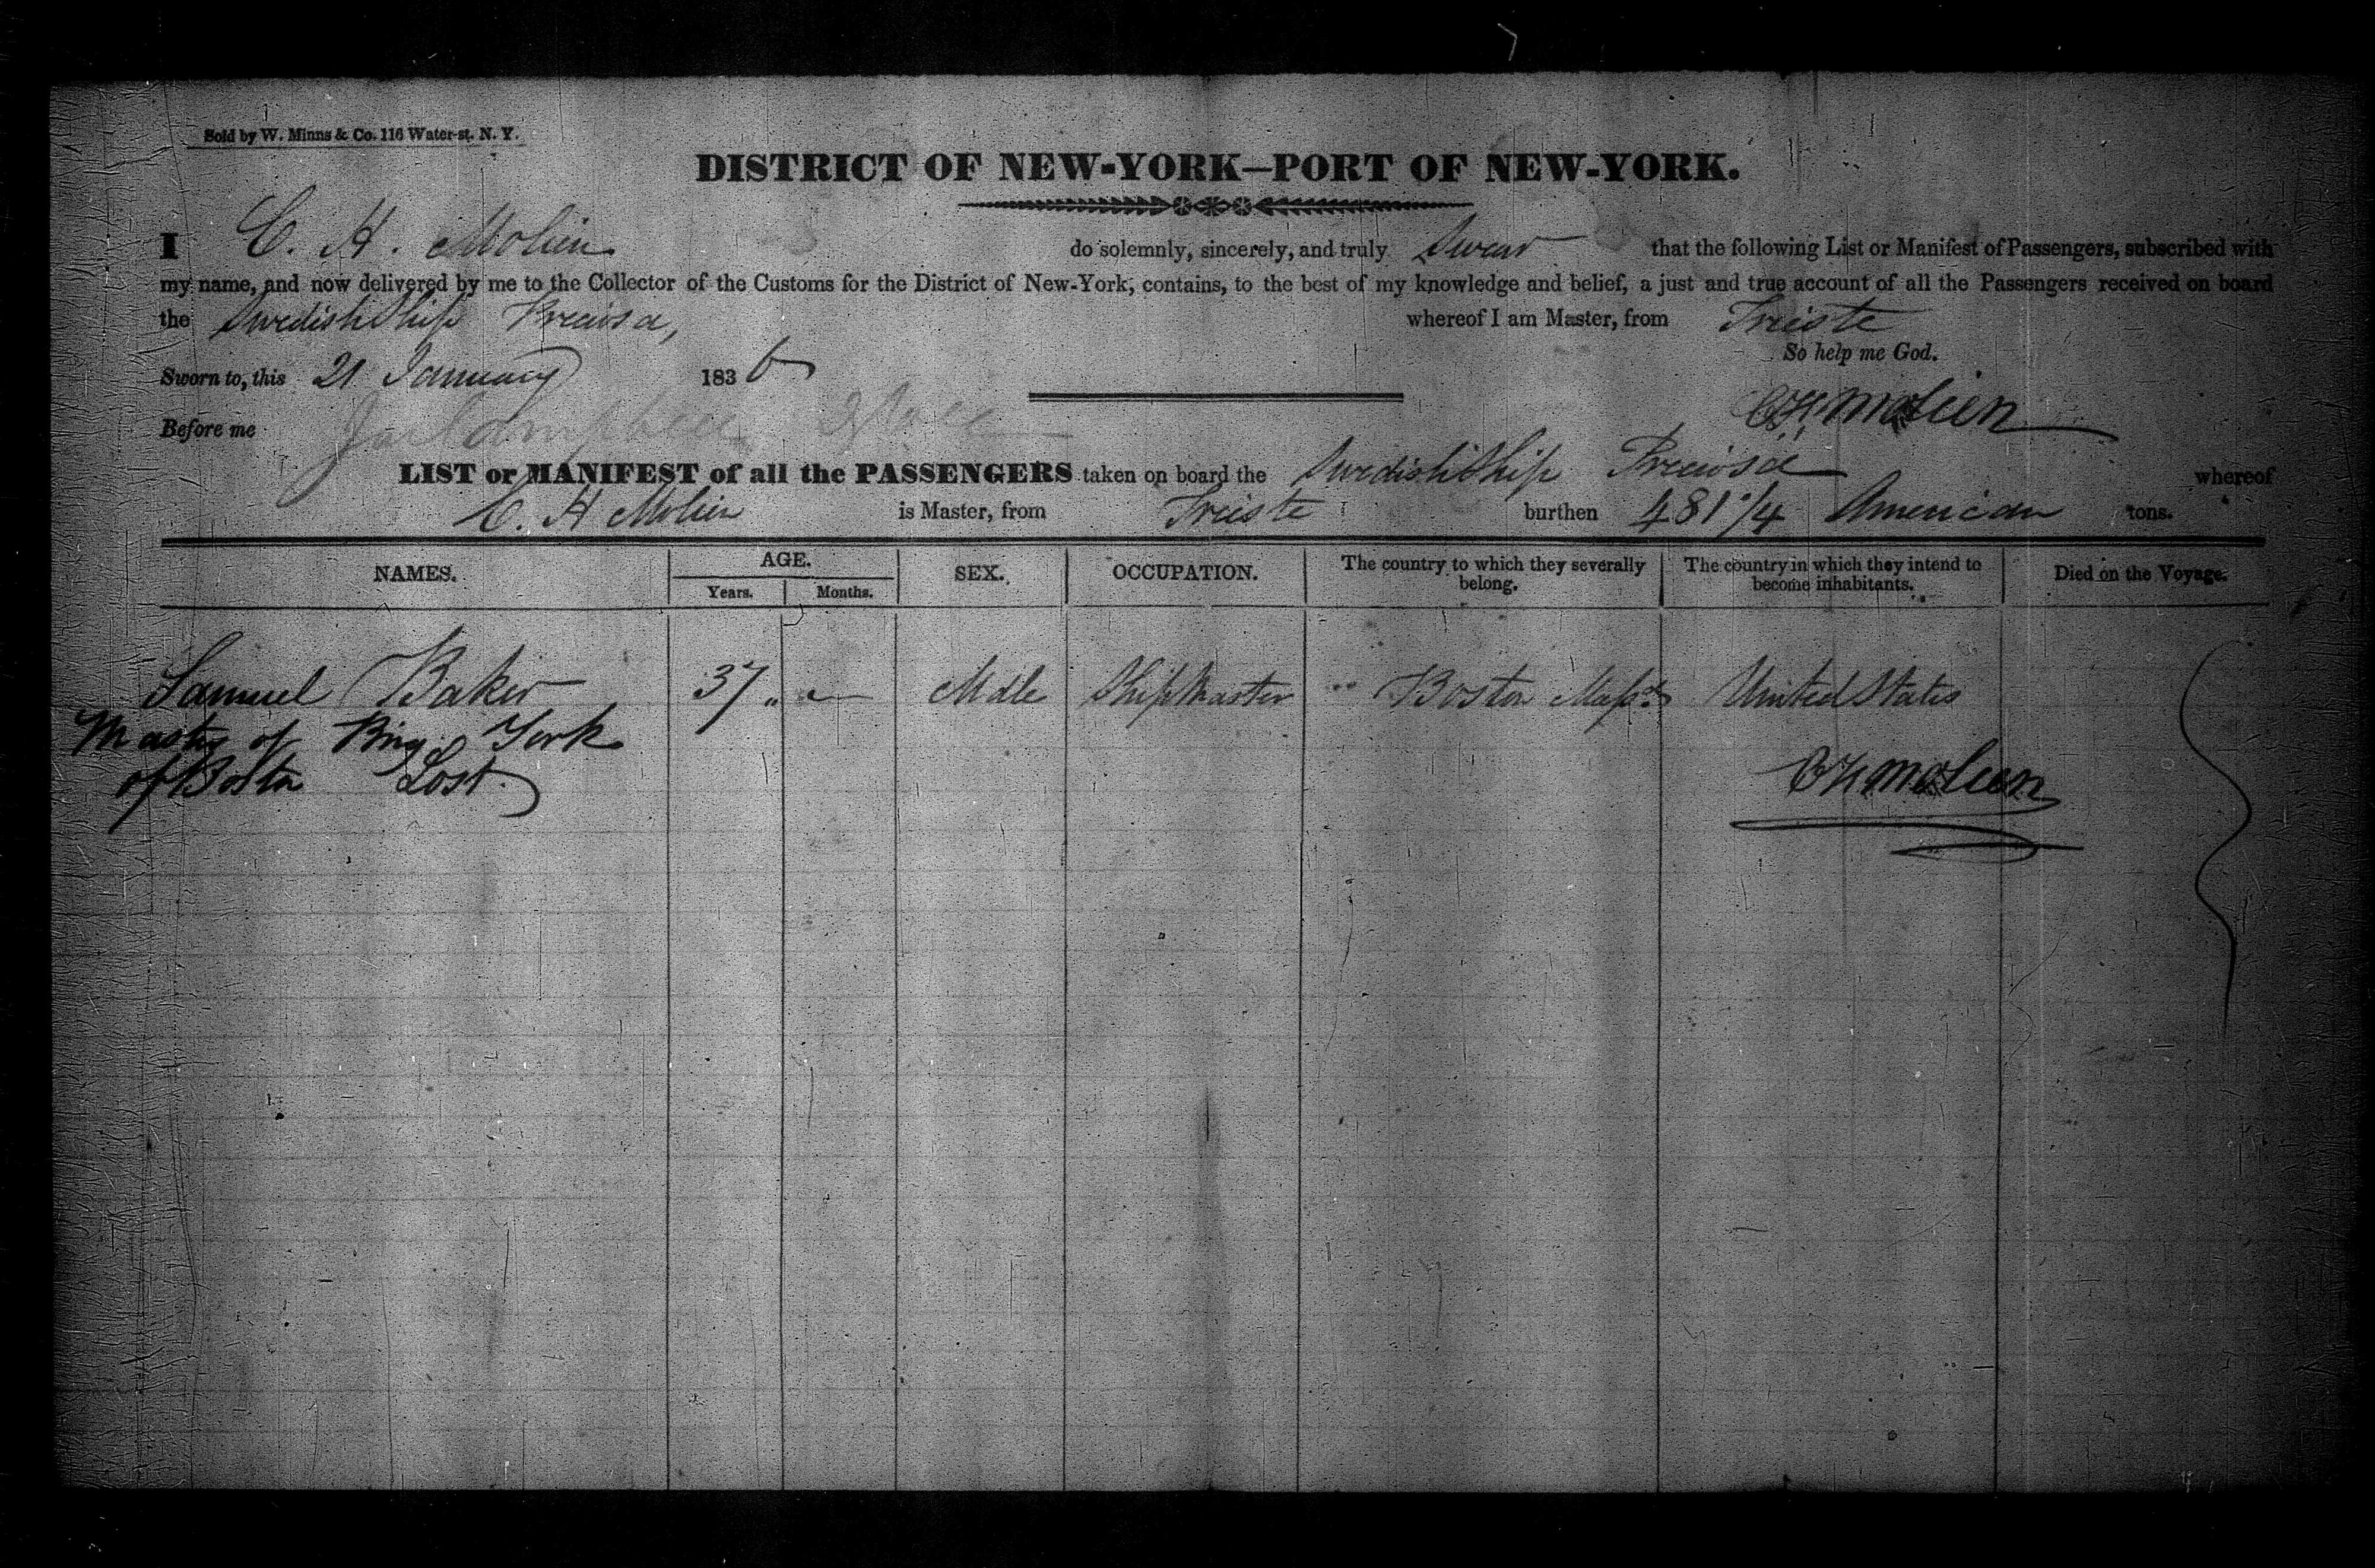 Sold by W. Minns & Co. 116 Water-st. N. Y.
DISTRICT OF NEW-YORK—PORT OF NEW-YORK.
I C. H. Molien do solemnly, sincerely, and truly Swear that the following List or Manifest of Passengers, subscribed with
my name, and now delivered by me to the Collector of the Customs for the District of New-York, contains, to the best of my knowledge and belief, a just and true account of all the Passengers received on board
the Swedish Ship Preciosa, whereof I am Master, from Trieste
So help me God.
Sworn to, this 21 January 1836
CHMolien
Before me
LIST or MANIFEST of all the PASSENGERS taken on board the Swedish Ship Preciosa whereof
C. H Molien is Master, from Trieste burthen 481 1/4 American tons.
NAMES. AGE. SEX. OCCUPATION. The country to which they severally belong. The country in which they intend to become inhabitants. Died on the Voyage.
Years. Months.
Samuel Baker 37 " — Male Ship Master Boston Masst. United States
Master of Brig York
of Boston Lost.
CHMolien